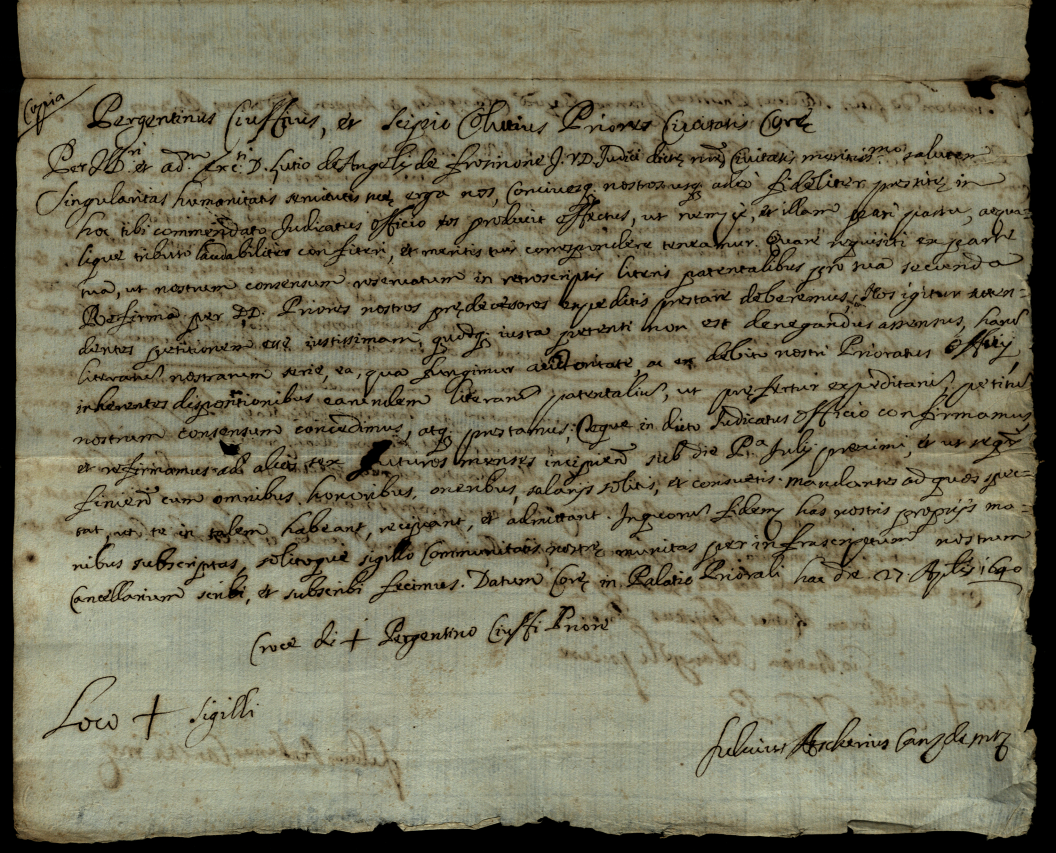 Coppia
Pergentinus Ciuffius, et Scipio Olutius Priores Civitatis Corę
Per Ill.ri et adm. Exc.ti D. Lutio de Angelis de Frosinone J.V.D. Judici dictę nrę Civitatis meritiss.mo salutem
Singularitas humanitatis servitutis tuę erga nos, Concivesq. nostros usq. adeo fideliter prestitę in
hoc tibi commendato Judicatus officio tos producit effectus, ut nemp̄ę, et illam pari passu, aequa-
lique tributo laudabiliter confiteri, et meritis tuis correspondere teneamur. Quare requisiti ex parte
tua, ut nostrum consensum reservatum in retroscriptis literis patentalibus pro tua secunda
Refirma per DD. Priores nostros prędecessores expeditis prestare deberemus; Nos igitur atten-
dentes petitionem esse iustissimam, quodq. iusta petenti non est denegandus assensus, harū
literarū nostrarum serie, ea, qua fungimur auctoritate, ac ex debito nostri Prioratus Officij
inherentes dispositionibus earundem literarū patentaliū, ut pręfertur expeditarū, petitū
nostrum consensum concedimus, atq. prestamus; Teque in dicto Judicatus officio confirmamus
et refirmamus ad alios sex futuros menses incipien̄ sub die P.a Julij proximi, et ut seqr̄
finien̄ cum omnibus honoribus, oneribus, salarijs solitis, et consuetis. Mandantes ad quos spec-
tat, ut te in talem habeant, recipiant, et admittant. In quorū fidem has nostris proprijs ma-
nibus subscriptas, solitoque sigillo Communitatis nostrę munitas per infrascriptum nostrum
Cancellarium scribi, et subscribi fecimus. Datum Corę in Palatio Priorali hac die 27 Aplis 1640
Croce di + Pergentino Ciuffi Priore
Loco + sigilli
Fulvius Canz de mtō